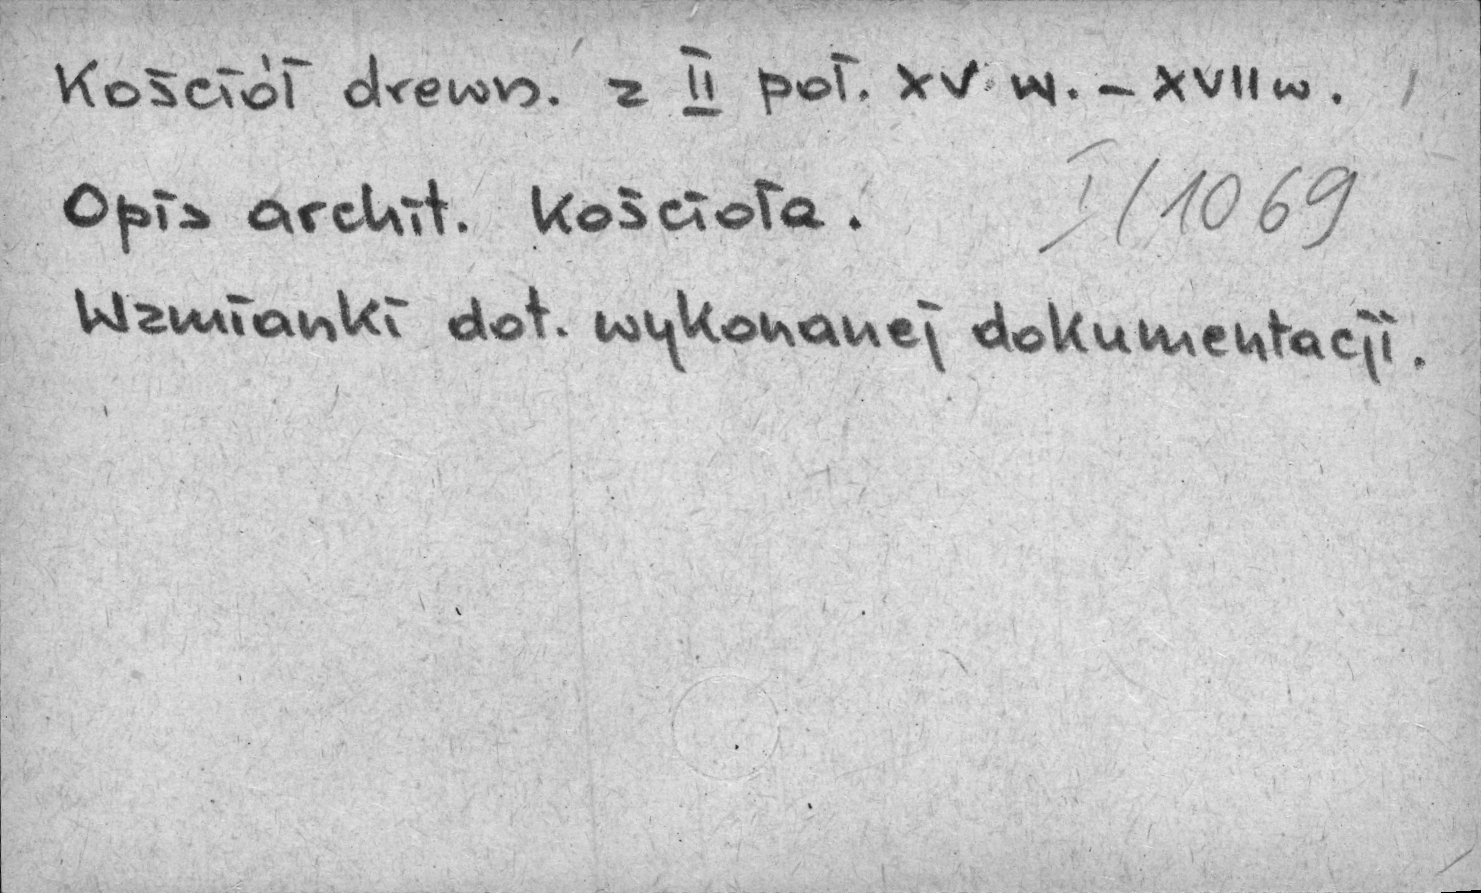 Kościół drewn. z II poł. XV w. – XVII w.
I/1069
Opis archit. kościoła.
Wzmianki dot. wykonanej dokumentacji.